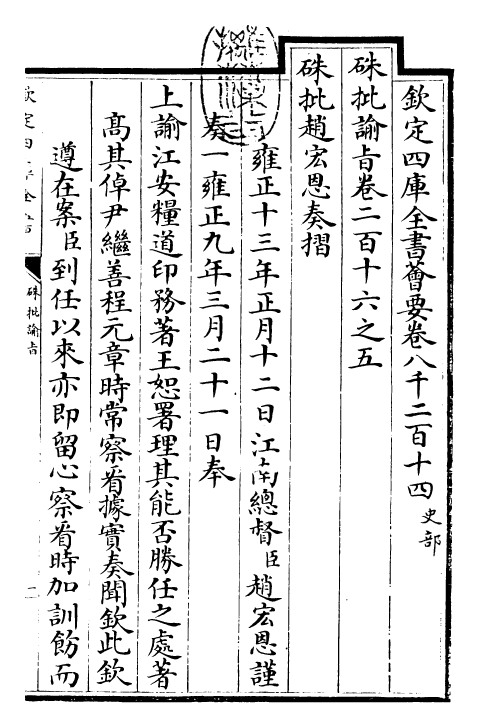 欽定四庫全書薈要卷八千二百十四 史部
硃批諭旨卷二百十六之五
硃批趙宏恩奏摺
雍正十三年正月十二日江南總督臣趙宏恩謹
奏一雍正九年三月二十一日奉
上諭江安糧道印務著王恕署理其能否勝任之處著
髙其倬尹繼善程元章時常察看據實奏聞欽此欽
遵在案臣到任以來亦即留心察看時加訓飭而
硃批諭旨